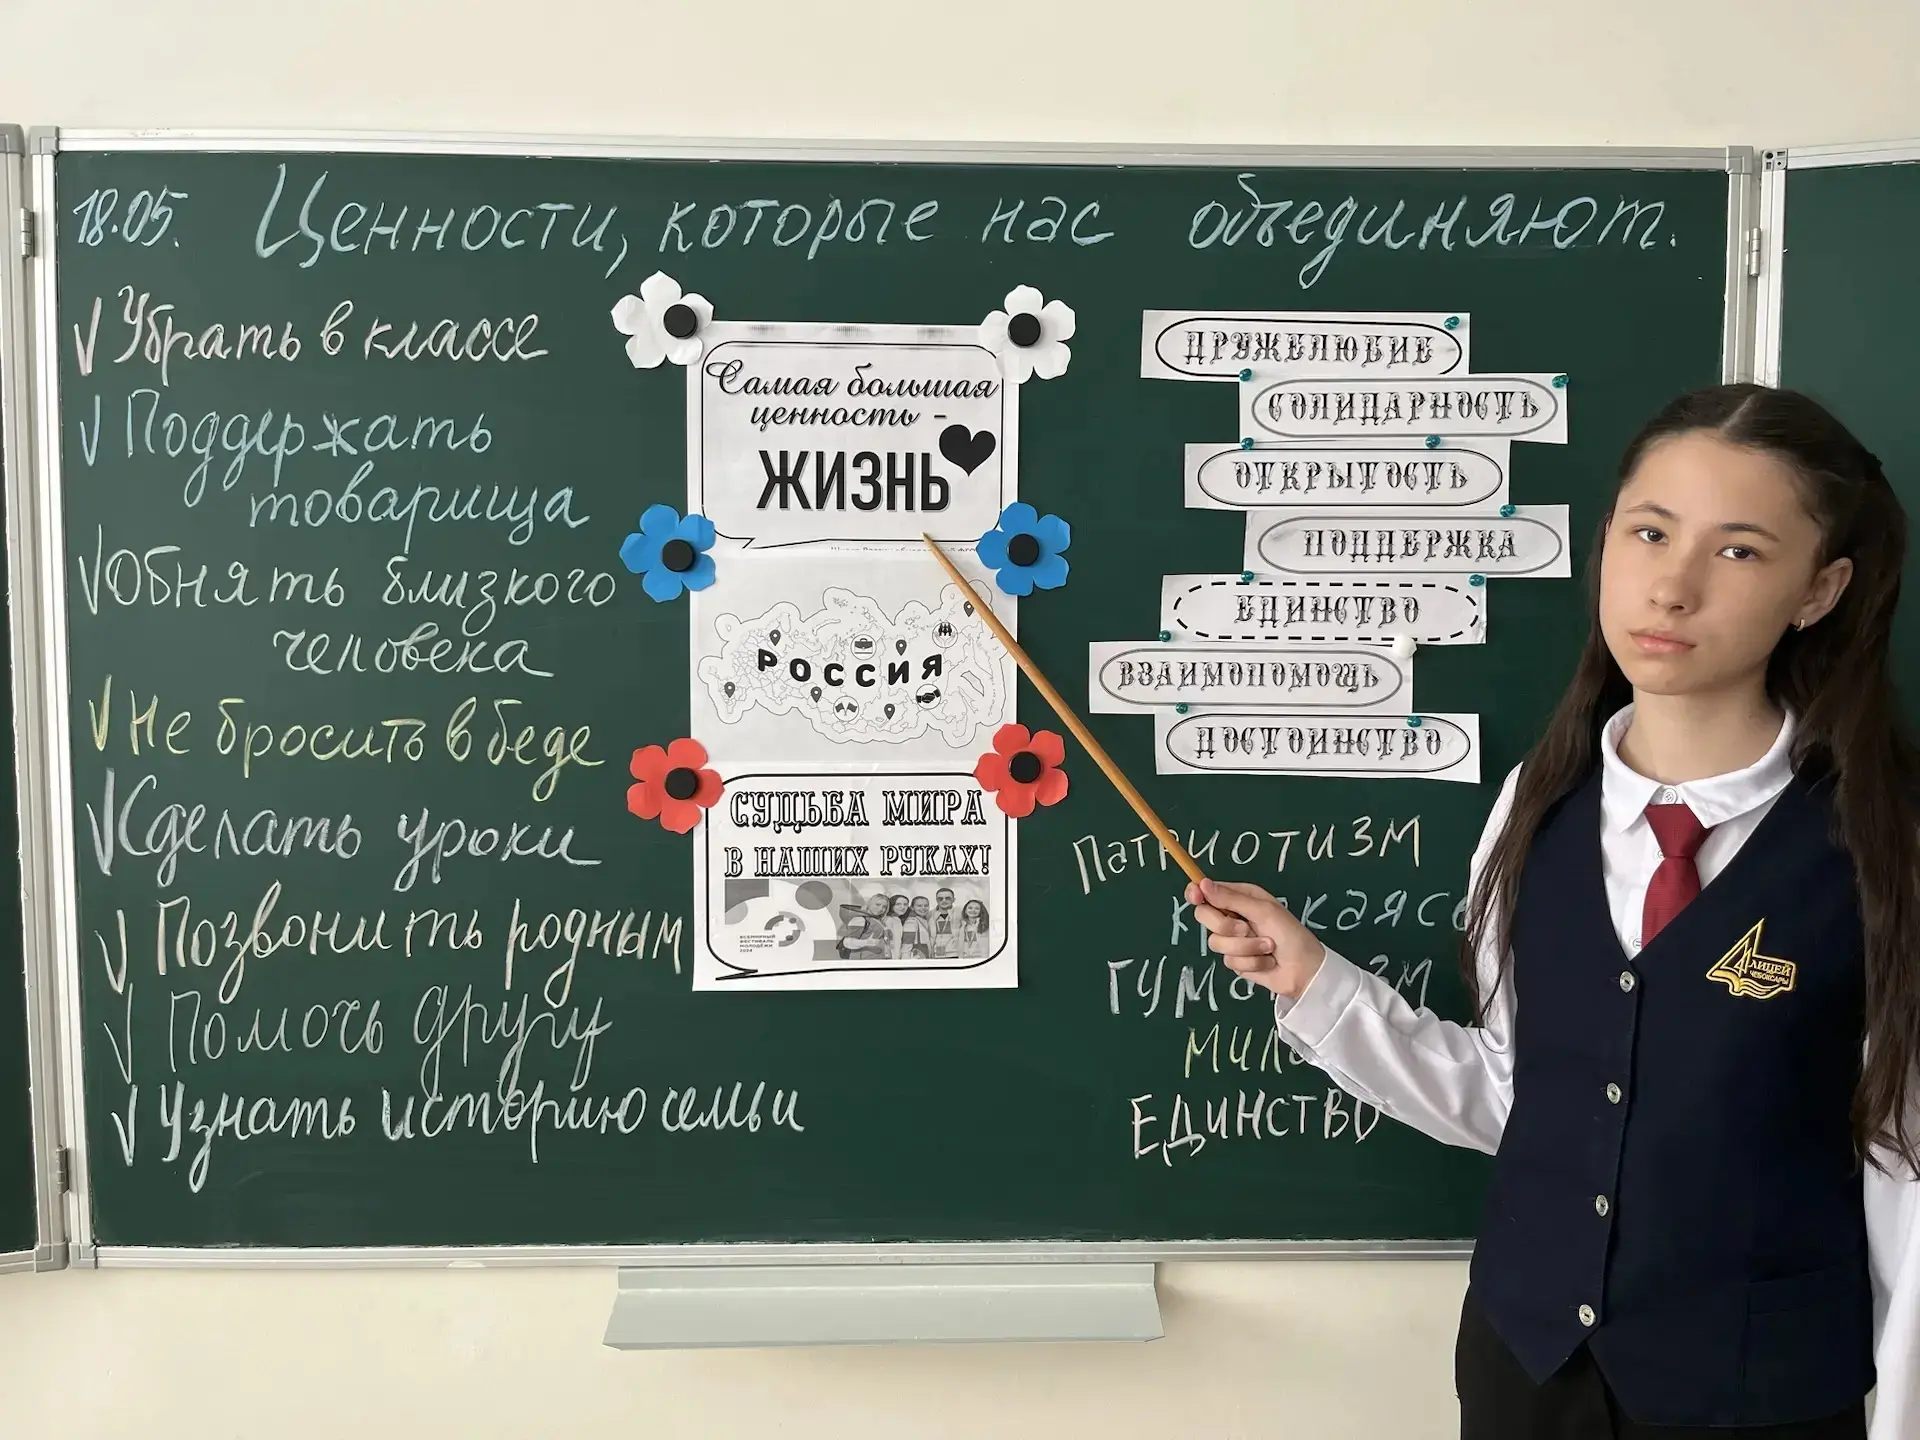 18.05. Ценности, которые нас объединяют.
√ Убрать в классе
√ Поддержать
товарища
√ Обнять близкого
человека
√ Не бросить в беде
√ Сделать уроки
√ Позвонить родным
√ Помочь другу
√ Узнать историю семьи
Самая большая
ценность -
ЖИЗНЬ
РОССИЯ
СУДЬБА МИРА
В НАШИХ РУКАХ!
ВСЕМИРНЫЙ
ФЕСТИВАЛЬ
МОЛОДЁЖИ
2024
ДРУЖЕЛЮБИЕ
СОЛИДАРНОСТЬ
ОТКРЫТОСТЬ
ПОДДЕРЖКА
ЕДИНСТВО
ВЗАИМОПОМОЩЬ
ДОСТОИНСТВО
Патриотизм
ЕДИНСТВО
ЛИЦЕЙ
ЧЕБОКСАРЫ